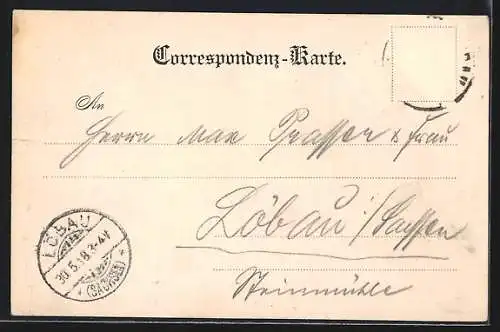 Correspondenz-Karte.
An
Herrn Max Prasser & Frau
Löbau i/Sachsen
Steinmühle
LÖBAU
30.5.18. 3-4V
(SACHSEN)